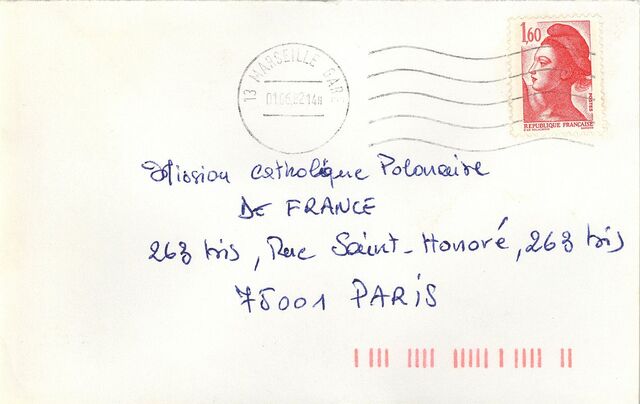 13 MARSEILLE GARE
01.06.82 14H
1,60
POSTES
REPUBLIQUE FRANÇAISE
Mission catholique Polonaise
DE FRANCE
263 bis, Rue Saint-Honoré, 263 bis
75001 PARIS